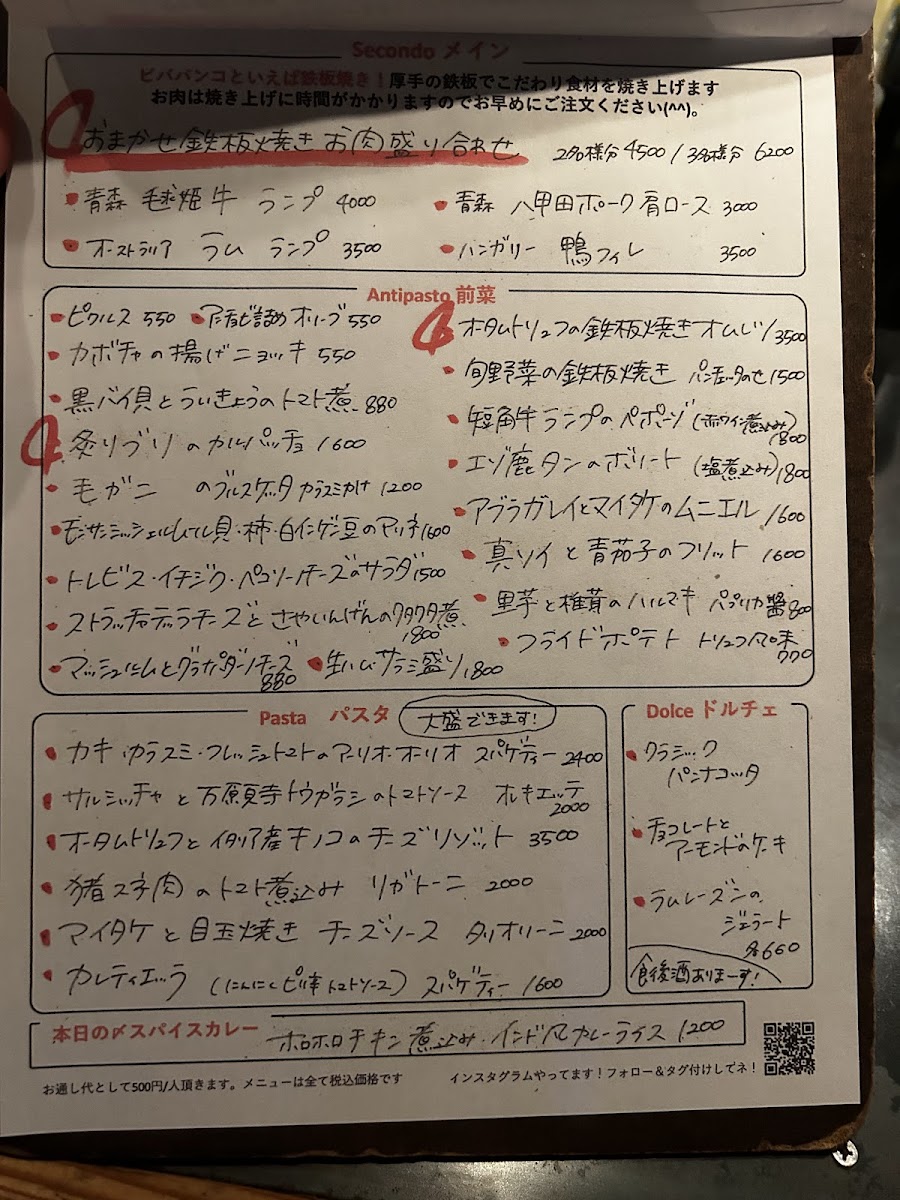 Secondo メイン
ビババンコといえば鉄板焼き！厚手の鉄板でこだわり食材を焼き上げます
お肉は焼き上げに時間がかかりますのでお早めにご注文ください(^^)。
おまかせ鉄板焼き お肉盛り合わせ 2名様分 4500 / 3名様分 6200
青森 毬姫牛 ランプ 4000
青森 八甲田ポーク肩ロース 3000
オーストラリア ラム ランプ 3500
ハンガリー 鴨フィレ 3500
Antipasto 前菜
ピクルス 550
アンチョビ詰め オリーブ 550
カボチャの揚げニョッキ 550
黒バイ貝とういきょうのトマト煮 880
炙りブリのカルパッチョ 1600
毛ガニ のブルスケッタ カラスミかけ 1200
モンサンミッシェルムール貝・柿・白インゲン豆のマリネ 1600
トレビス・イチジク・ペコリーノチーズのサラダ 1500
ストラッチャテッラチーズと さやいんげんのクタクタ煮
1800
マッシュルームとグラナパダーノチーズ
880
生ハム サラミ盛り 1800
オータムトリュフの鉄板焼きオムレツ 3500
旬野菜の鉄板焼き パンチェッタのせ 1500
短角牛 ランプの ペポーゾ (赤ワイン煮込み)
1800
エゾ鹿タンのボリート (塩煮込み) 1800
アブラガレイとマイタケのムニエル 1600
真ソイと青茄子のフリット 1600
里芋と椎茸のハルマキ パプリカ醬 800
フライドポテト トリュフ風味
770
Pasta パスタ
大盛できます！
カキ・カラスミ・フレッシュトマトのアーリオ・オーリオ スパゲティー 2400
サルシッチャと万願寺トウガラシのトマトソース オレキエッテ
2000
オータムトリュフとイタリア産キノコのチーズリゾット 3500
猪スネ肉のトマト煮込み リガトーニ 2000
マイタケと目玉焼き チーズソース タリオリーニ 2000
カレティエッラ (にんにくピリ辛トマトソース) スパゲティー 1600
Dolce ドルチェ
クラシック
パンナコッタ
チョコレートと
アーモンドのケーキ
ラムレーズンの
ジェラート
各660
食後酒ありまーす！
本日の〆スパイスカレー
ホロホロチキン煮込み・インド風カレーライス 1200
お通し代として500円/人頂きます。メニューは全て税込価格です
インスタグラムやってます！フォロー＆タグ付けしてネ！